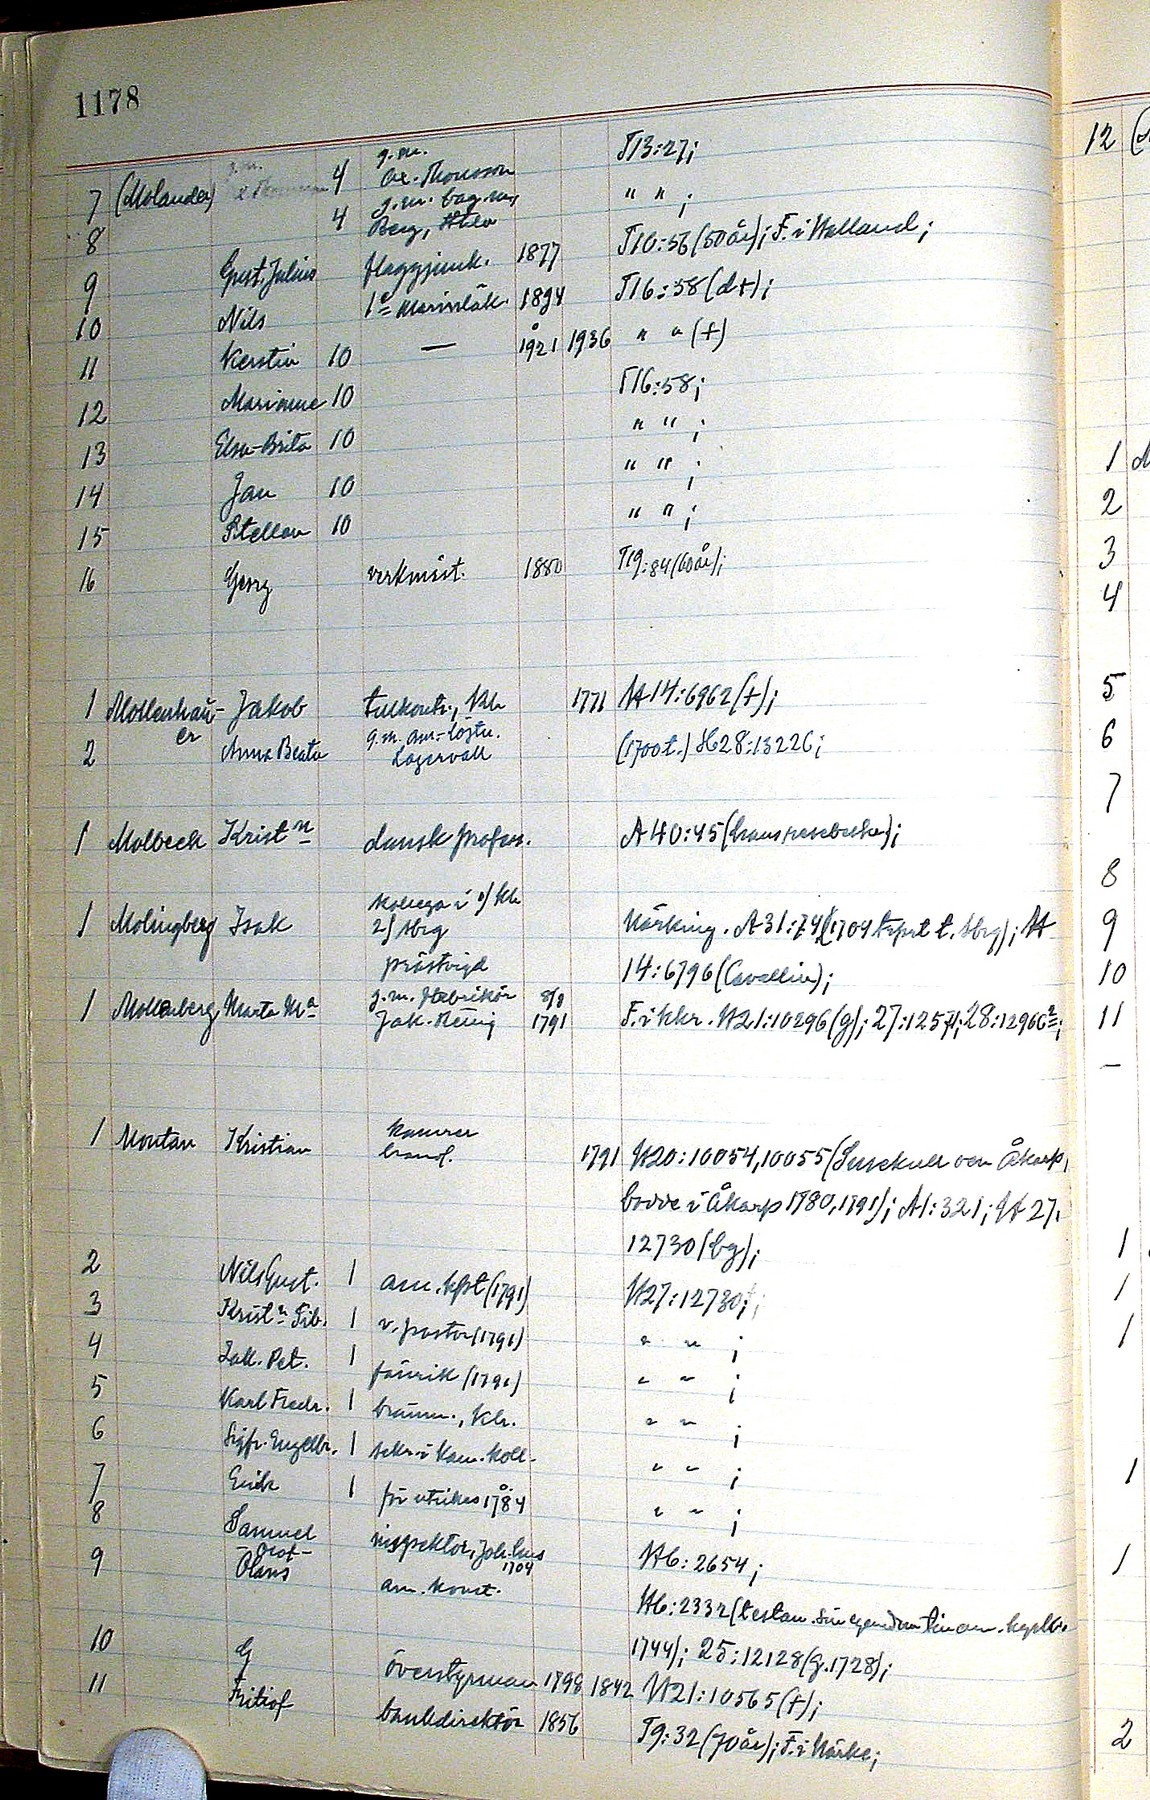 1178
7 (Molander) 4 g.m. Ax. Thonsson T13:27;
8 4 g.m. Berg, " " ;
9 Gust. Julius flaggjunk. 1877 T16:56 (50 år); F. i Halland;
10 Nils 1e Marinläk. 1894 T16:58 (d+);
11 Kerstin 10 — Å 1921 1936 " " (+)
12 Marianne 10 T16:58;
13 Elsa-Brita 10 " " ;
14 Jan 10 " " ;
15 Stellan 10 " " ;
16 Georg verkmäst. 1880 T19:84 (60 år);
1 Mollenhau-er Jakob tullkontr., Kh 1771 H14:6962 (+);
2 Anna Beata g.m. am.-löjtn. Lagervall (1700 t.) H28:13226;
1 Molbeck Krist n dansk profess. A40:45 (hans resebeskr);
1 Molingberg Isak kollega i 1/ Kh
2/ Abg Närking. A31:74 (1704 t. Abg); H
prästvigd 14:6796 (Cavallin);
1 Mollenberg Marta Ma g.m. fabrikör 8/8
Jak. 1791 F. i Kkr. H21:10296 (g); 27:12574; 28:12966;
1 Montan Kristian kamrer
1791 H20:10054, 10055 ( Åkarp,
bodde i Åkarp 1780, 1791); A1:321; H27:
12730 (bg);
2 Nils Gust. 1 am. kpt (1791) H27:12730;
3 Kristn Sib. 1 v. pastor (1791) " " ;
4 Zak. Pet. 1 fänrik (1791) " " ;
5 Karl Fredr. 1 Kh. " " ;
6 Sigfr. Engelbr. 1 sekr. i Kam. koll. " " ;
7 Erik 1 for utrikes 1784 " " ;
8 Samuel inspektor, 1704 H6:2654;
9 -Olof-
Olaus am. konst. H6:2332 (testam. sin egendom
1744); 25:12128 (g. 1728);
10 G överstyrman 1798 1842 H21:10565 (+);
11 Fritiof bankdirektör 1856 T9:32 (70 år); F. i Närke;
12
1
2
3
4
5
6
7
8
9
10
11
—
1
1
1
1
1
2